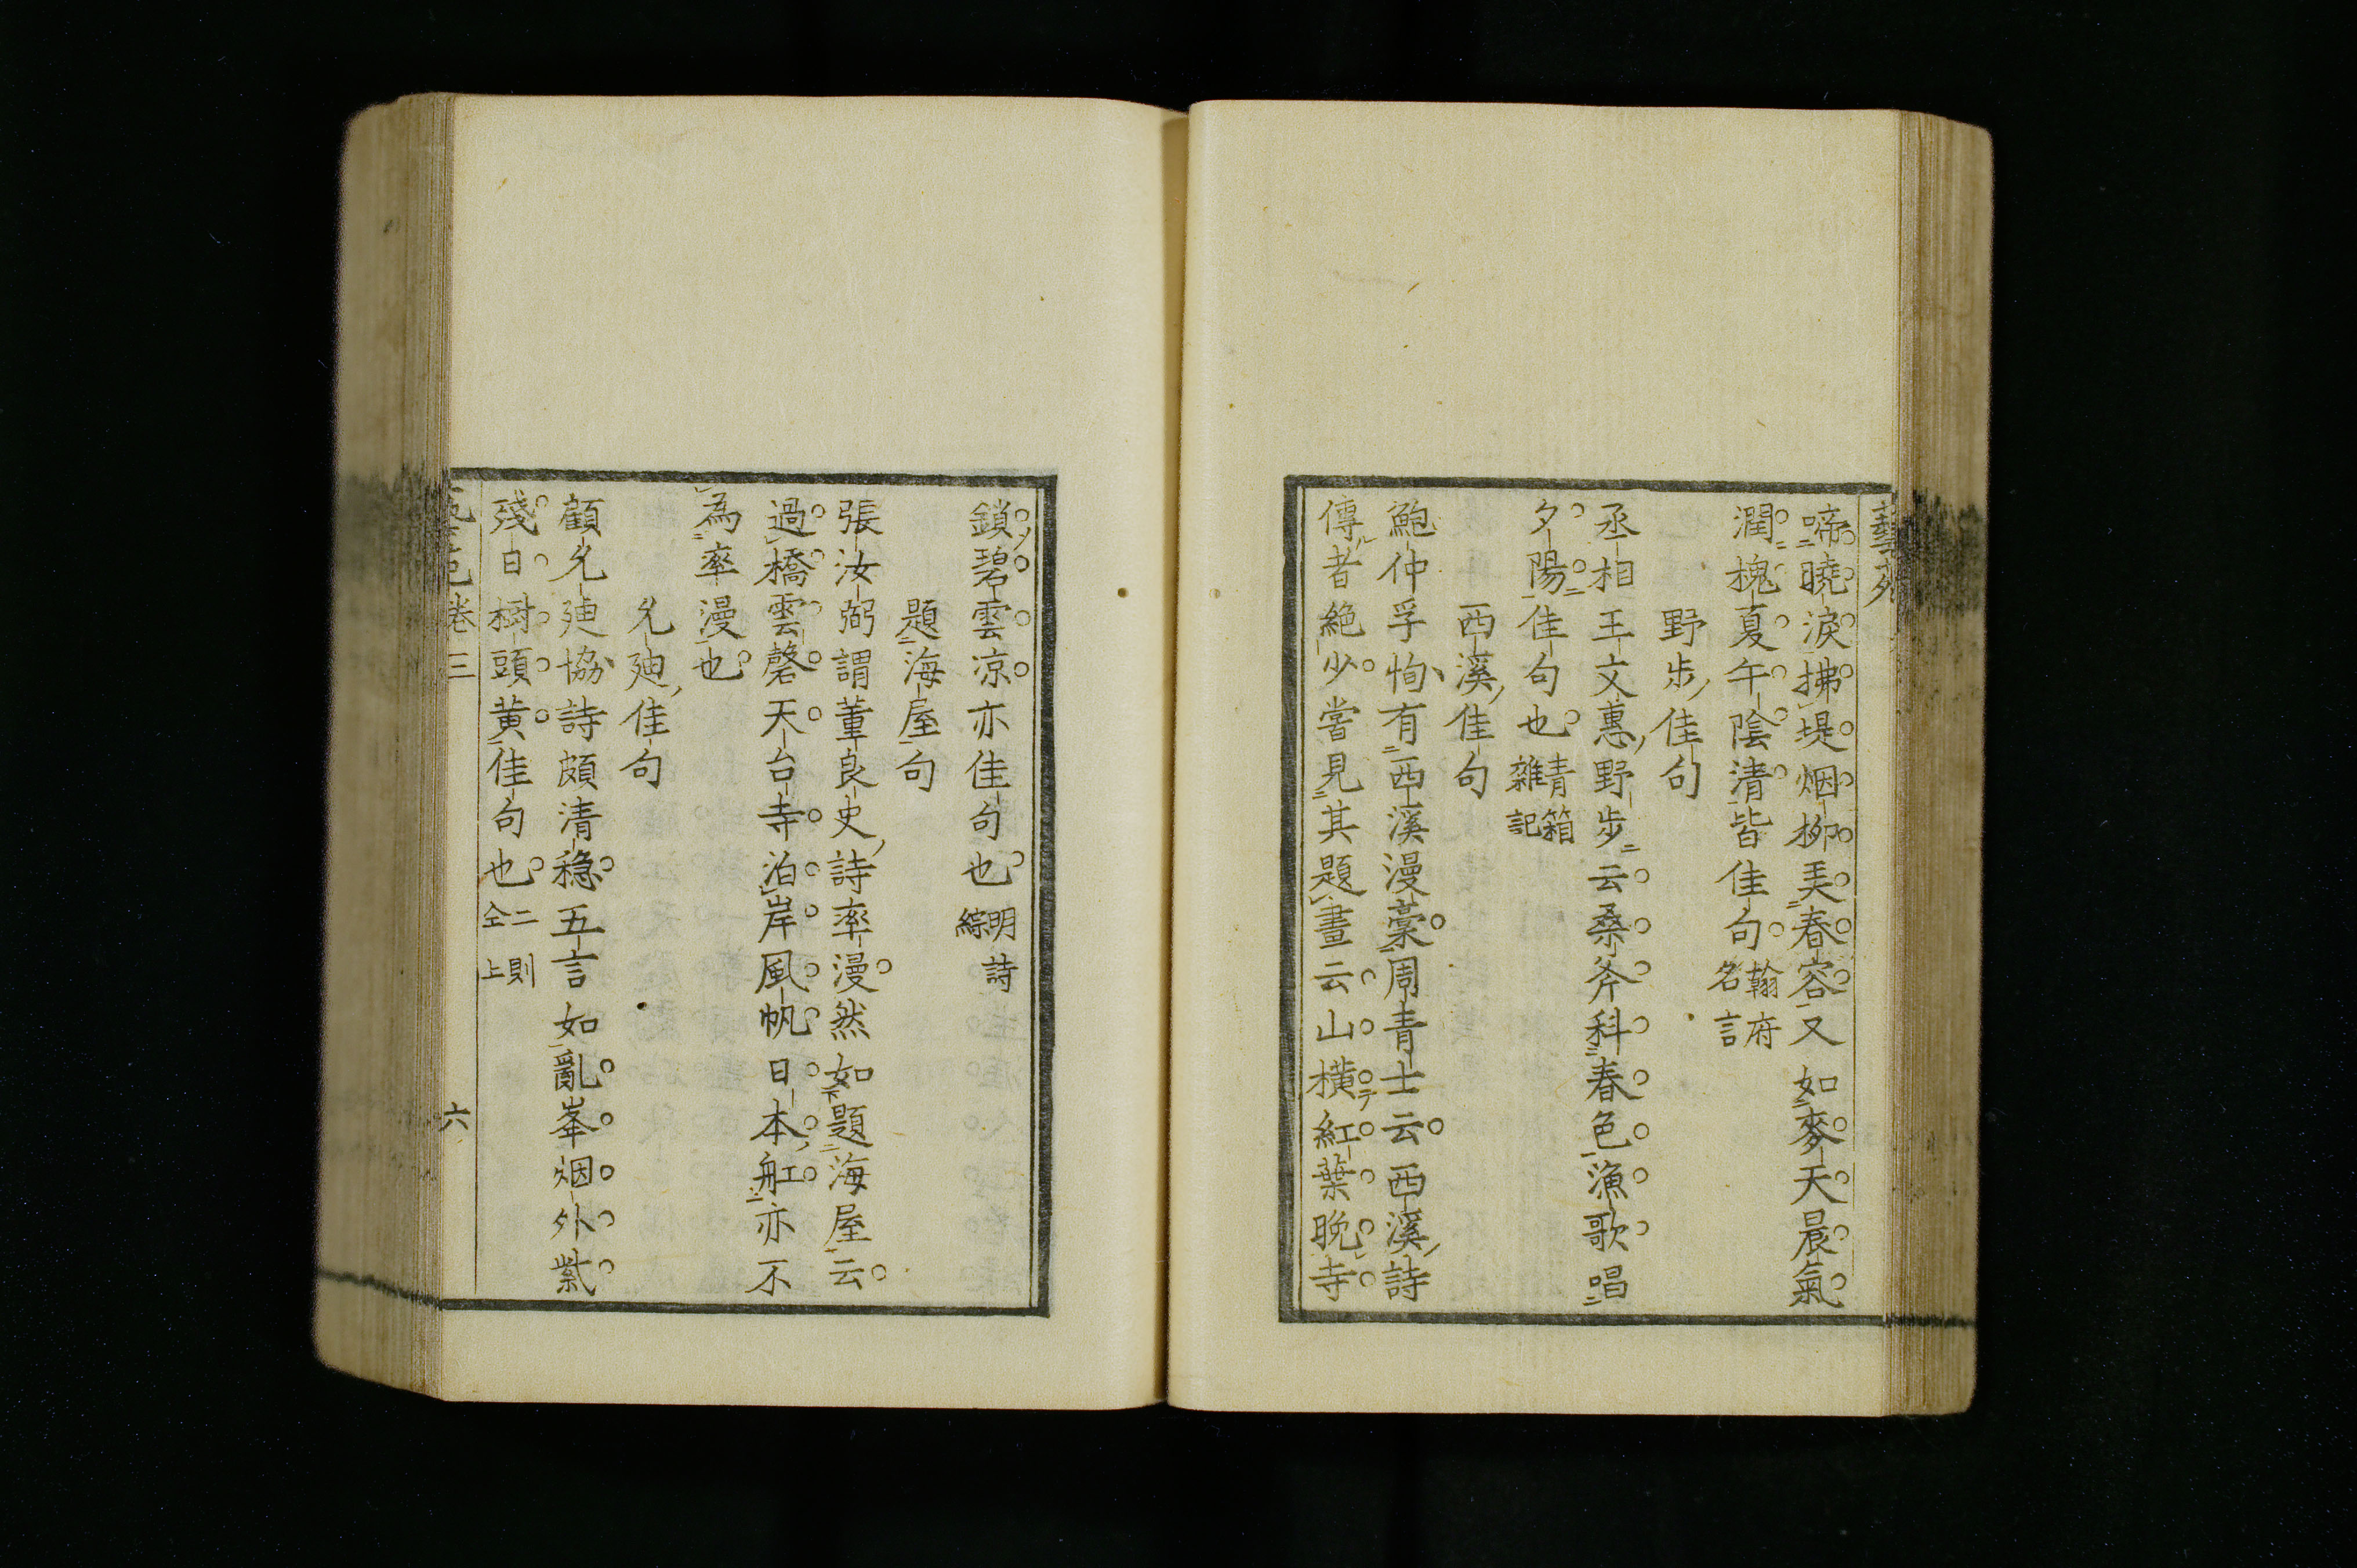 啼曉淚拂堤烟柳美春容又如麥天晨氣
潤槐夏午陰清皆佳句翰府名言
野步佳句
丞相王文惠野步云桑斧科春色漁歌唱
夕陽佳句也青箱雜記
西溪佳句
鮑仲孚恂有西溪漫藁周青士云西溪詩
傳者絶少嘗見其題畫云山橫紅葉晩寺
鎖碧雲凉亦佳句也明詩綜
題海屋句
張汝弼謂董良史詩率漫然如題海屋云
過橋雲磬天台寺泊岸風帆日本舡亦不
為率漫也
允廸佳句
顧允廸協詩頗清穏五言如亂峯烟外紫
殘日樹頭黄佳句也二則仝上
卷三
六